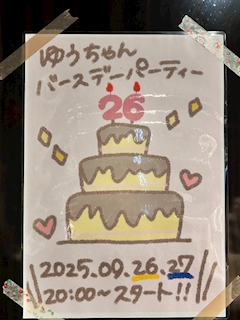 ゆうちゃん
バースデーパーティー
26
2025.09.26.27
20:00〜スタート!!